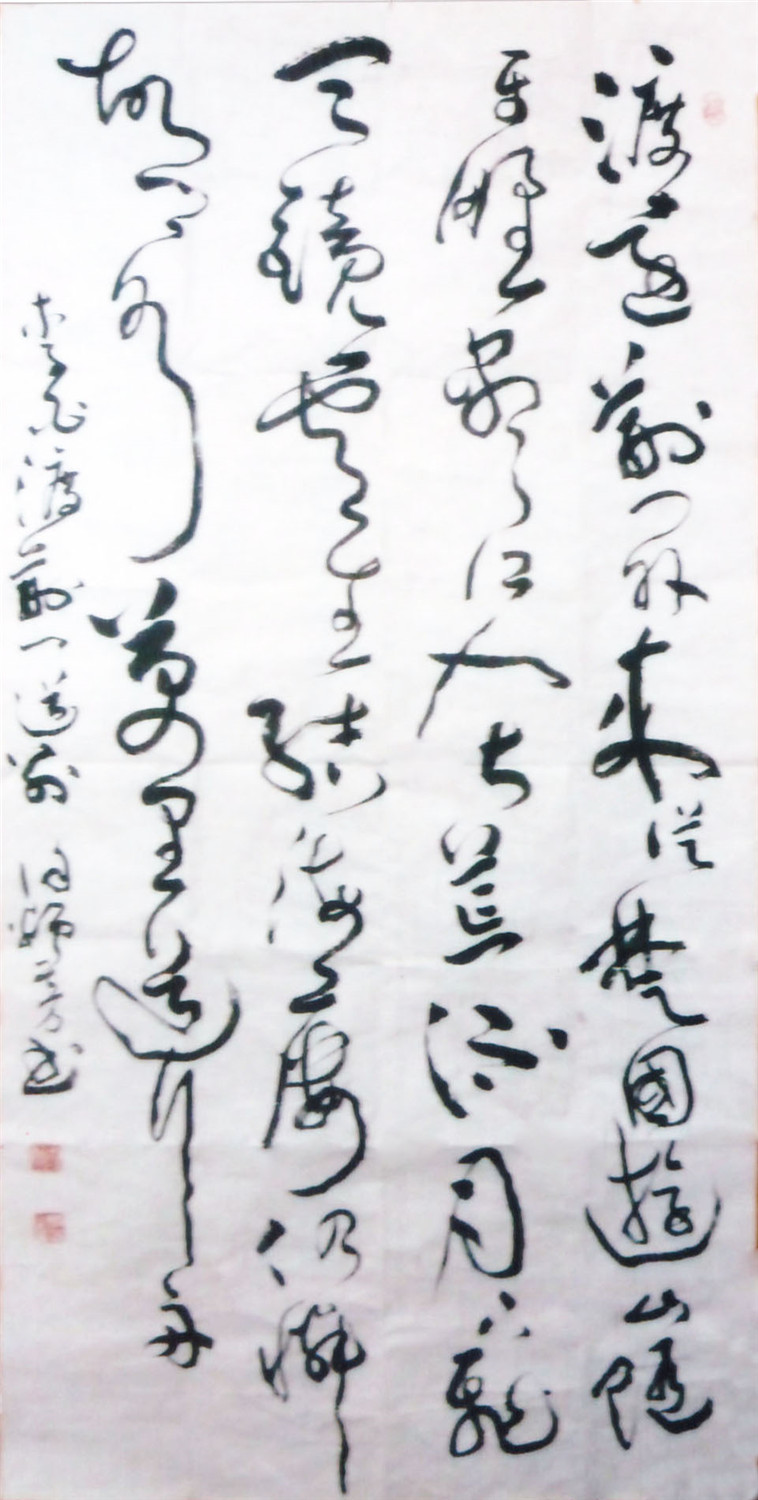 渡遠荊門外來從楚國遊山隨
平野盡江入大荒流月下飛
天鏡雲生結海樓仍憐
故鄉水萬里送行舟
李白渡荊門送別 书